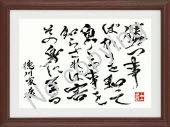 勝つ事
ばかり知て
事を
知らざれば害
身に至る
徳川家康